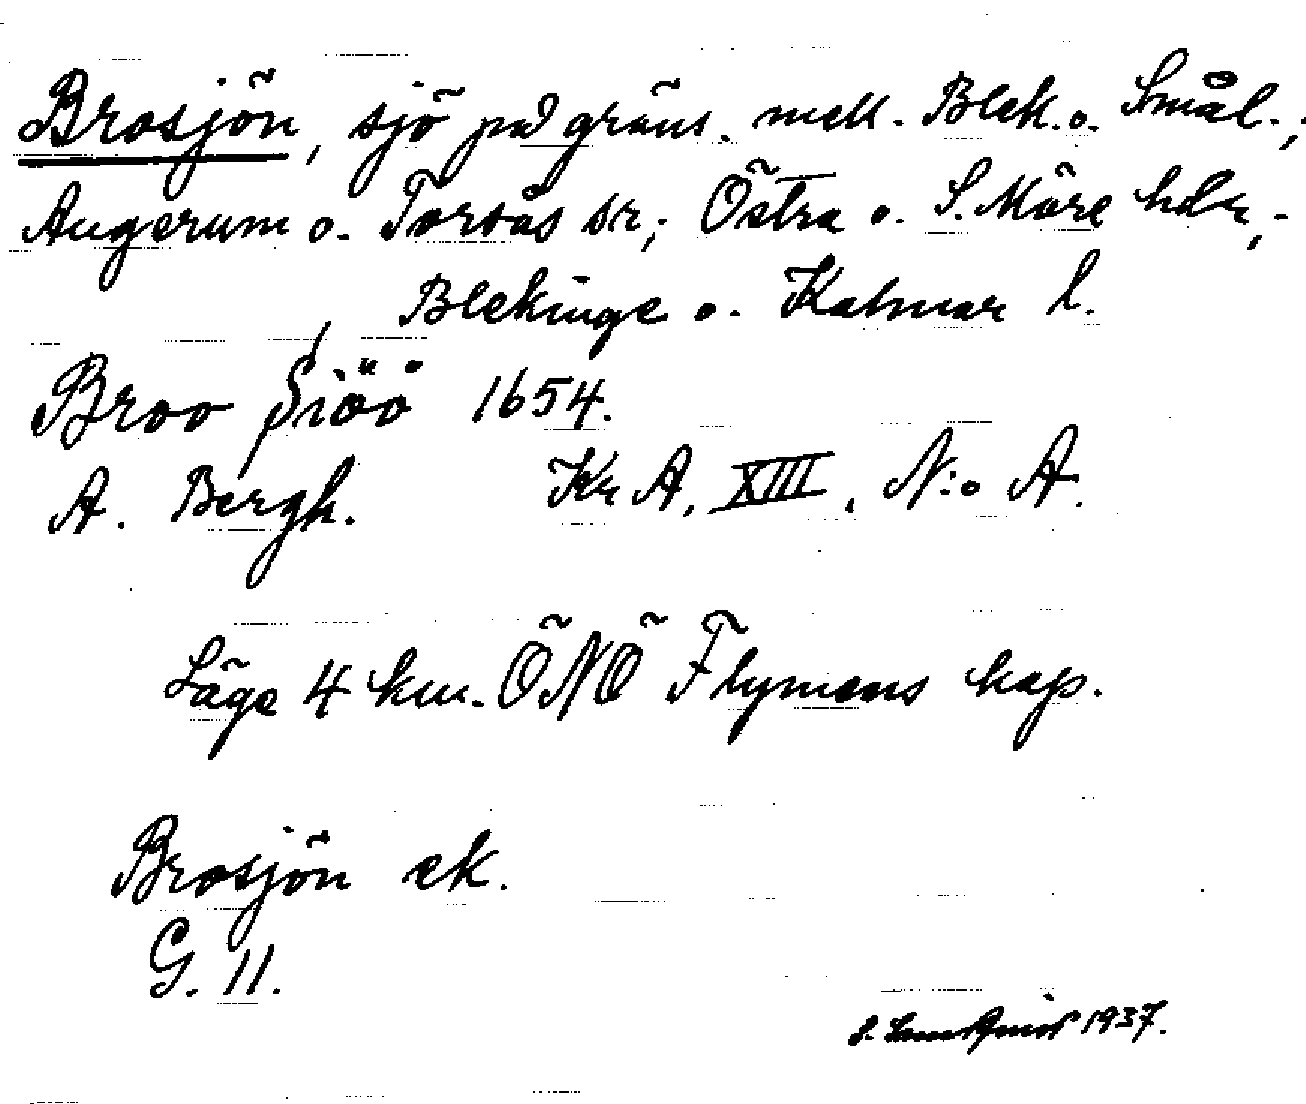 Brosjön, sjö på gräns. mell. Blek. o. Smål.;
Augerum o. Torsås sr; Östra o. S. Möre hdr,-
Blekinge o. Kalmar l.
Broo Siöö 1654.
A. Bergh. Kr A, XIII, N:o A.
Läge 4 km. ÖNÖ Flymens kap.
Brosjön ek.
G. 11.
1937.